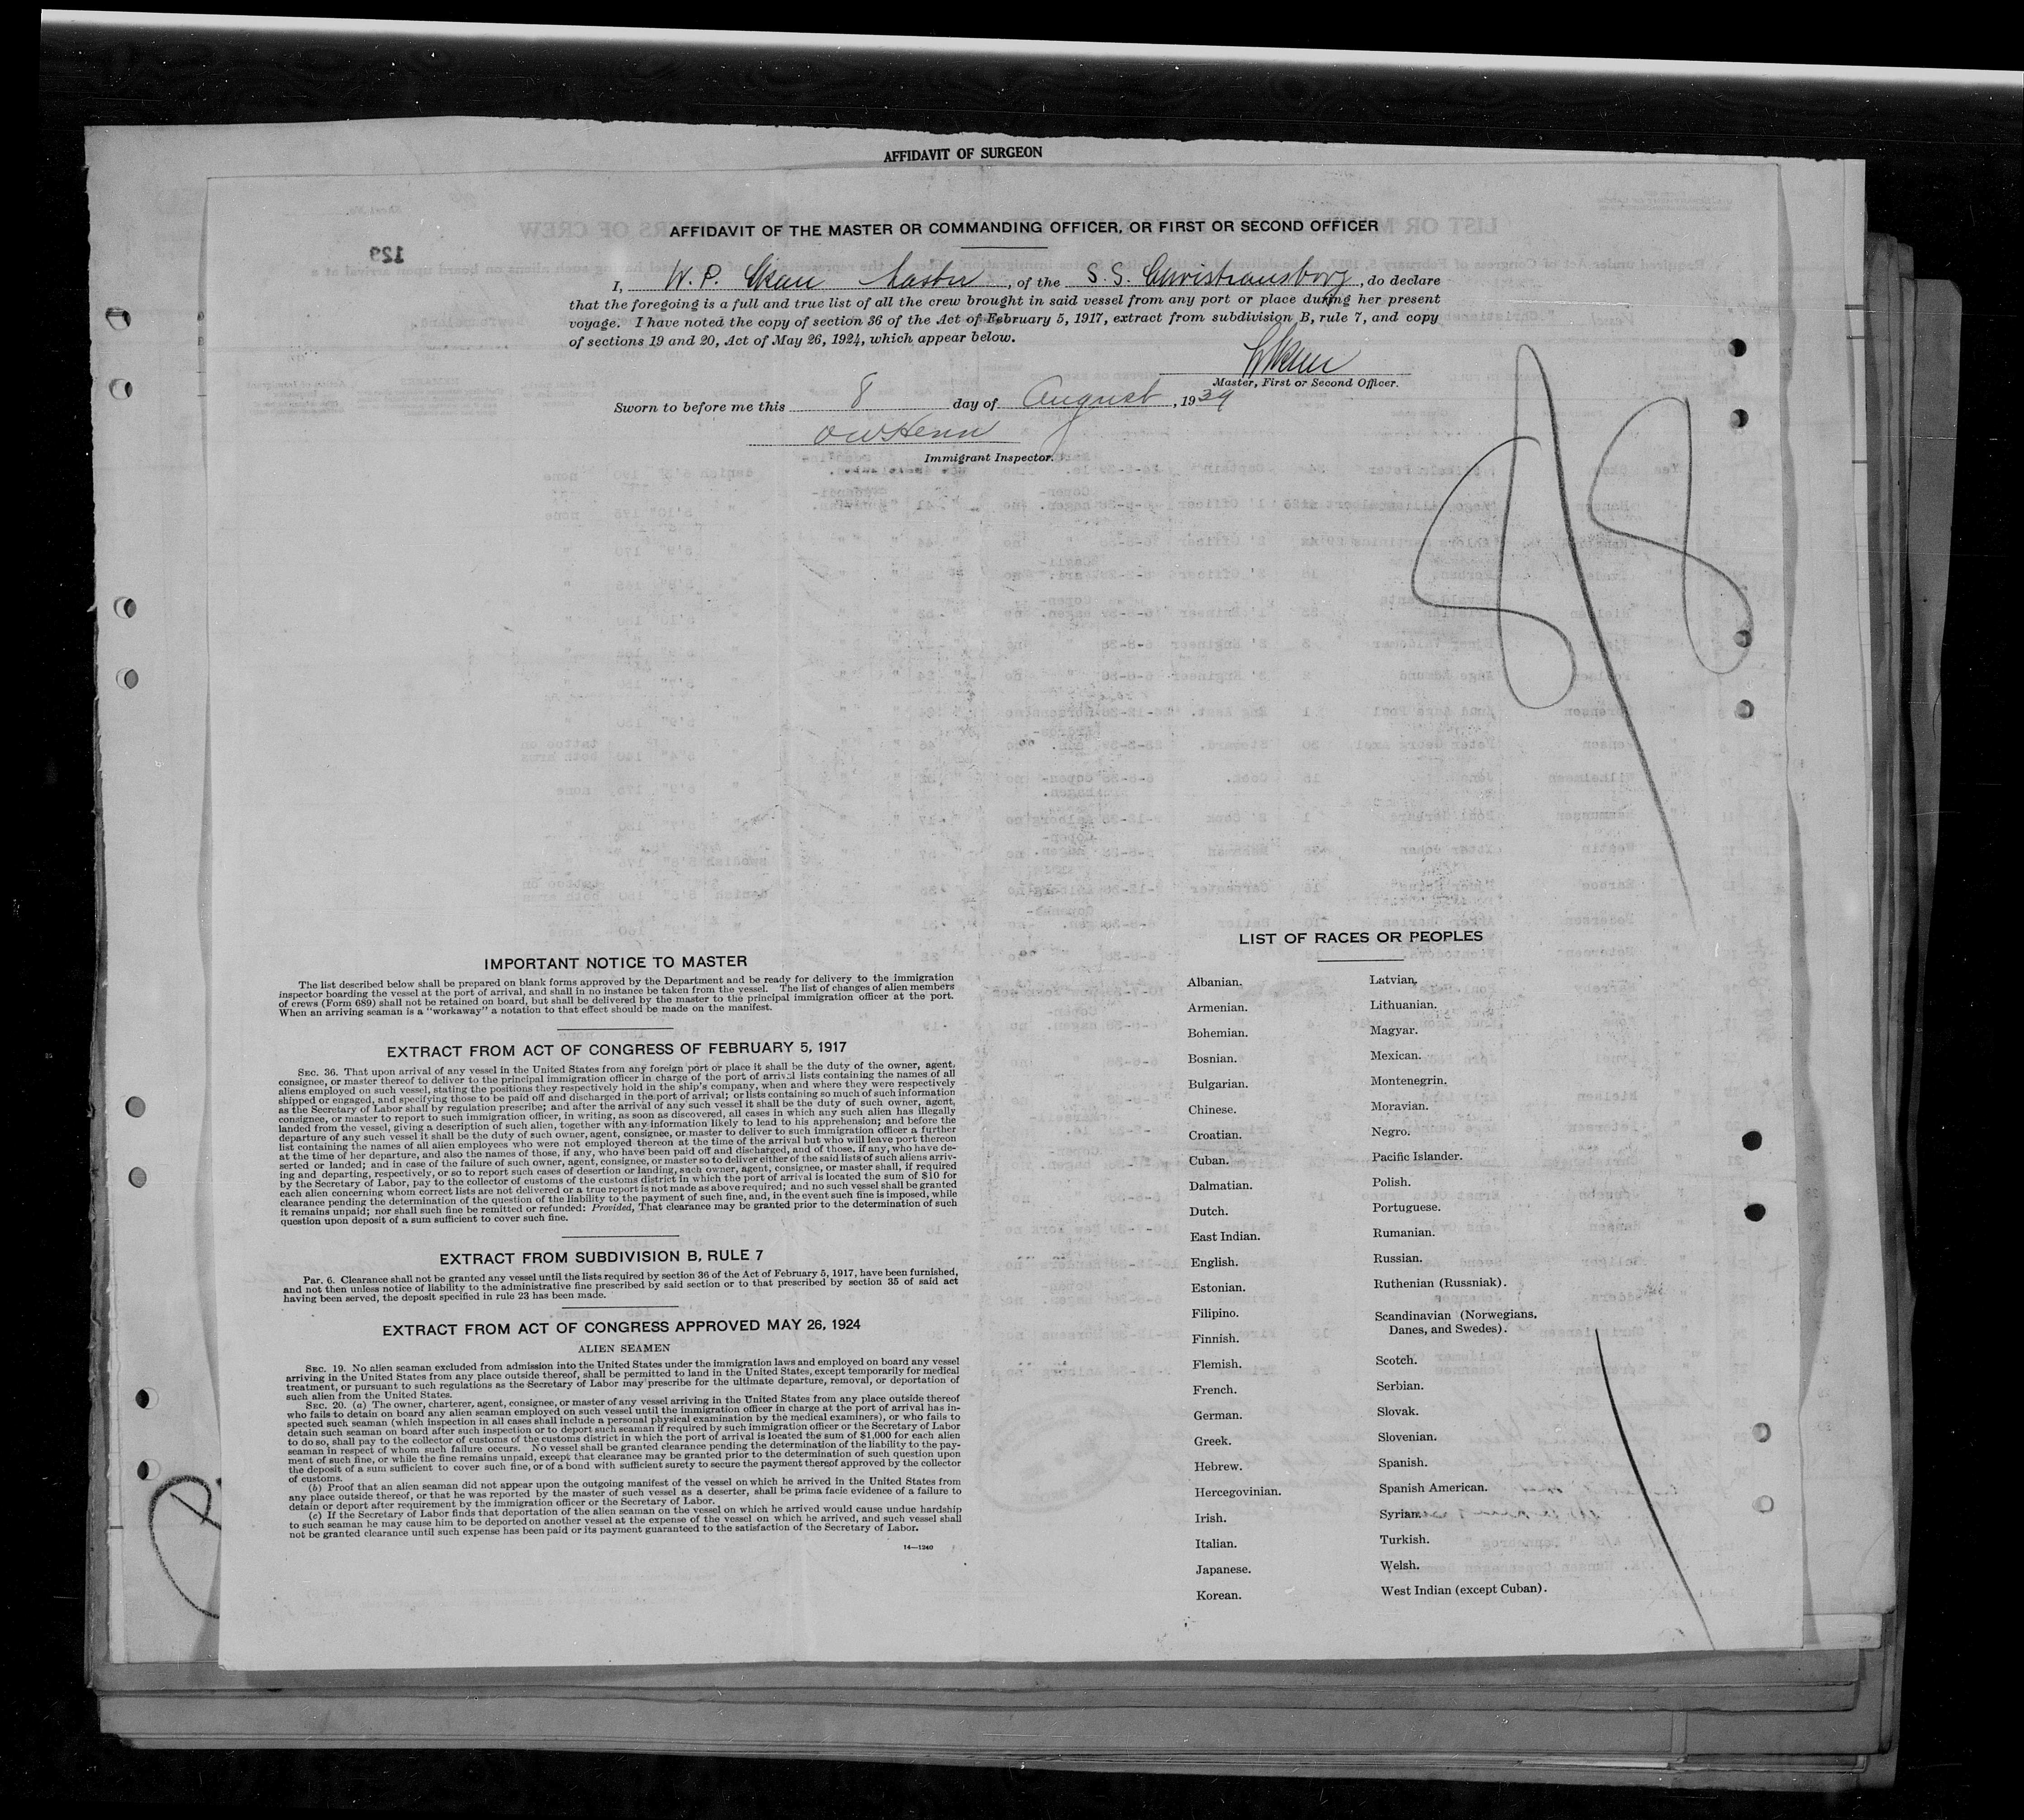 AFFIDAVIT OF SURGEON
AFFIDAVIT OF THE MASTER OR COMMANDING OFFICER, OR FIRST OR SECOND OFFICER
129
I, W. P. Skau Master, of the S. S. Christiansborg, do declare
that the foregoing is a full and true list of all the crew brought in said vessel from any port or place during her present
voyage. I have noted the copy of section 36 of the Act of February 5, 1917, extract from subdivision B, rule 7, and copy
of sections 19 and 20, Act of May 26, 1924, which appear below.
Skau
Master, First or Second Officer.
Sworn to before me this 8 day of August, 1939
Immigrant Inspector.
IMPORTANT NOTICE TO MASTER
The list described below shall be prepared on blank forms approved by the Department and be ready for delivery to the immigration
inspector boarding the vessel at the port of arrival, and shall in no instance be taken from the vessel. The list of changes of alien members
of crews (Form 689) shall not be retained on board, but shall be delivered by the master to the principal immigration officer at the port.
When an arriving seaman is a "workaway" a notation to that effect should be made on the manifest.
EXTRACT FROM ACT OF CONGRESS OF FEBRUARY 5, 1917
SEC. 36. That upon arrival of any vessel in the United States from any foreign port or place it shall be the duty of the owner, agent,
consignee, or master thereof to deliver to the principal immigration officer in charge of the port of arrival lists containing the names of all
aliens employed on such vessel, stating the positions they respectively hold in the ship's company, when and where they were respectively
shipped or engaged, and specifying those to be paid off and discharged in the port of arrival; or lists containing so much of such information
as the Secretary of Labor shall by regulation prescribe; and after the arrival of any such vessel it shall be the duty of such owner, agent,
consignee, or master to report to such immigration officer, in writing, as soon as discovered, all cases in which any such alien has illegally
landed from the vessel, giving a description of such alien, together with any information likely to lead to his apprehension; and before the
departure of any such vessel it shall be the duty of such owner, agent, consignee, or master to deliver to such immigration officer a further
list containing the names of all alien employees who were not employed thereon at the time of the arrival but who will leave port thereon
at the time of her departure, and also the names of those, if any, who have been paid off and discharged, and of those, if any, who have de-
serted or landed; and in case of the failure of such owner, agent, consignee, or master so to deliver either of the said lists of such aliens arriv-
ing and departing, respectively, or so to report such cases of desertion or landing, such owner, agent, consignee, or master shall, if required
by the Secretary of Labor, pay to the collector of customs of the customs district in which the port of arrival is located the sum of $10 for
each alien concerning whom correct lists are not delivered or a true report is not made as above required; and no such vessel shall be granted
clearance pending the determination of the question of the liability to the payment of such fine, and, in the event such fine is imposed, while
it remains unpaid; nor shall such fine be remitted or refunded: Provided, That clearance may be granted prior to the determination of such
question upon deposit of a sum sufficient to cover such fine.
EXTRACT FROM SUBDIVISION B, RULE 7
Par. 6. Clearance shall not be granted any vessel until the lists required by section 36 of the Act of February 5, 1917, have been furnished,
and not then unless notice of liability to the administrative fine prescribed by said section or to that prescribed by section 35 of said act
having been served, the deposit specified in rule 23 has been made.
EXTRACT FROM ACT OF CONGRESS APPROVED MAY 26, 1924
ALIEN SEAMEN
SEC. 19. No alien seaman excluded from admission into the United States under the immigration laws and employed on board any vessel
arriving in the United States from any place outside thereof, shall be permitted to land in the United States, except temporarily for medical
treatment, or pursuant to such regulations as the Secretary of Labor may prescribe for the ultimate departure, removal, or deportation of
such alien from the United States.
SEC. 20. (a) The owner, charterer, agent, consignee, or master of any vessel arriving in the United States from any place outside thereof
who fails to detain on board any alien seaman employed on such vessel until the immigration officer in charge at the port of arrival has in-
spected such seaman (which inspection in all cases shall include a personal physical examination by the medical examiners), or who fails to
detain such seaman on board after such inspection or to deport such seaman if required by such immigration officer or the Secretary of Labor
to do so, shall pay to the collector of customs of the customs district in which the port of arrival is located the sum of $1,000 for each alien
seaman in respect of whom such failure occurs. No vessel shall be granted clearance pending the determination of the liability to the pay-
ment of such fine, or while the fine remains unpaid, except that clearance may be granted prior to the determination of such question upon
the deposit of a sum sufficient to cover such fine, or of a bond with sufficient surety to secure the payment thereof approved by the collector
of customs.
(b) Proof that an alien seaman did not appear upon the outgoing manifest of the vessel on which he arrived in the United States from
any place outside thereof, or that he was reported by the master of such vessel as a deserter, shall be prima facie evidence of a failure to
detain or deport after requirement by the immigration officer or the Secretary of Labor.
(c) If the Secretary of Labor finds that deportation of the alien seaman on the vessel on which he arrived would cause undue hardship
to such seaman he may cause him to be deported on another vessel at the expense of the vessel on which he arrived, and such vessel shall
not be granted clearance until such expense has been paid or its payment guaranteed to the satisfaction of the Secretary of Labor.
14—1240
LIST OF RACES OR PEOPLES
Albanian.
Armenian.
Bohemian.
Bosnian.
Bulgarian.
Chinese.
Croatian.
Cuban.
Dalmatian.
Dutch.
East Indian.
English.
Estonian.
Filipino.
Finnish.
Flemish.
French.
German.
Greek.
Hebrew.
Hercegovinian.
Irish.
Italian.
Japanese.
Korean.
Latvian.
Lithuanian.
Magyar.
Mexican.
Montenegrin.
Moravian.
Negro.
Pacific Islander.
Polish.
Portuguese.
Rumanian.
Russian.
Ruthenian (Russniak).
Scandinavian (Norwegians,
Danes, and Swedes).
Scotch.
Serbian.
Slovak.
Slovenian.
Spanish.
Spanish American.
Syrian.
Turkish.
Welsh.
West Indian (except Cuban).